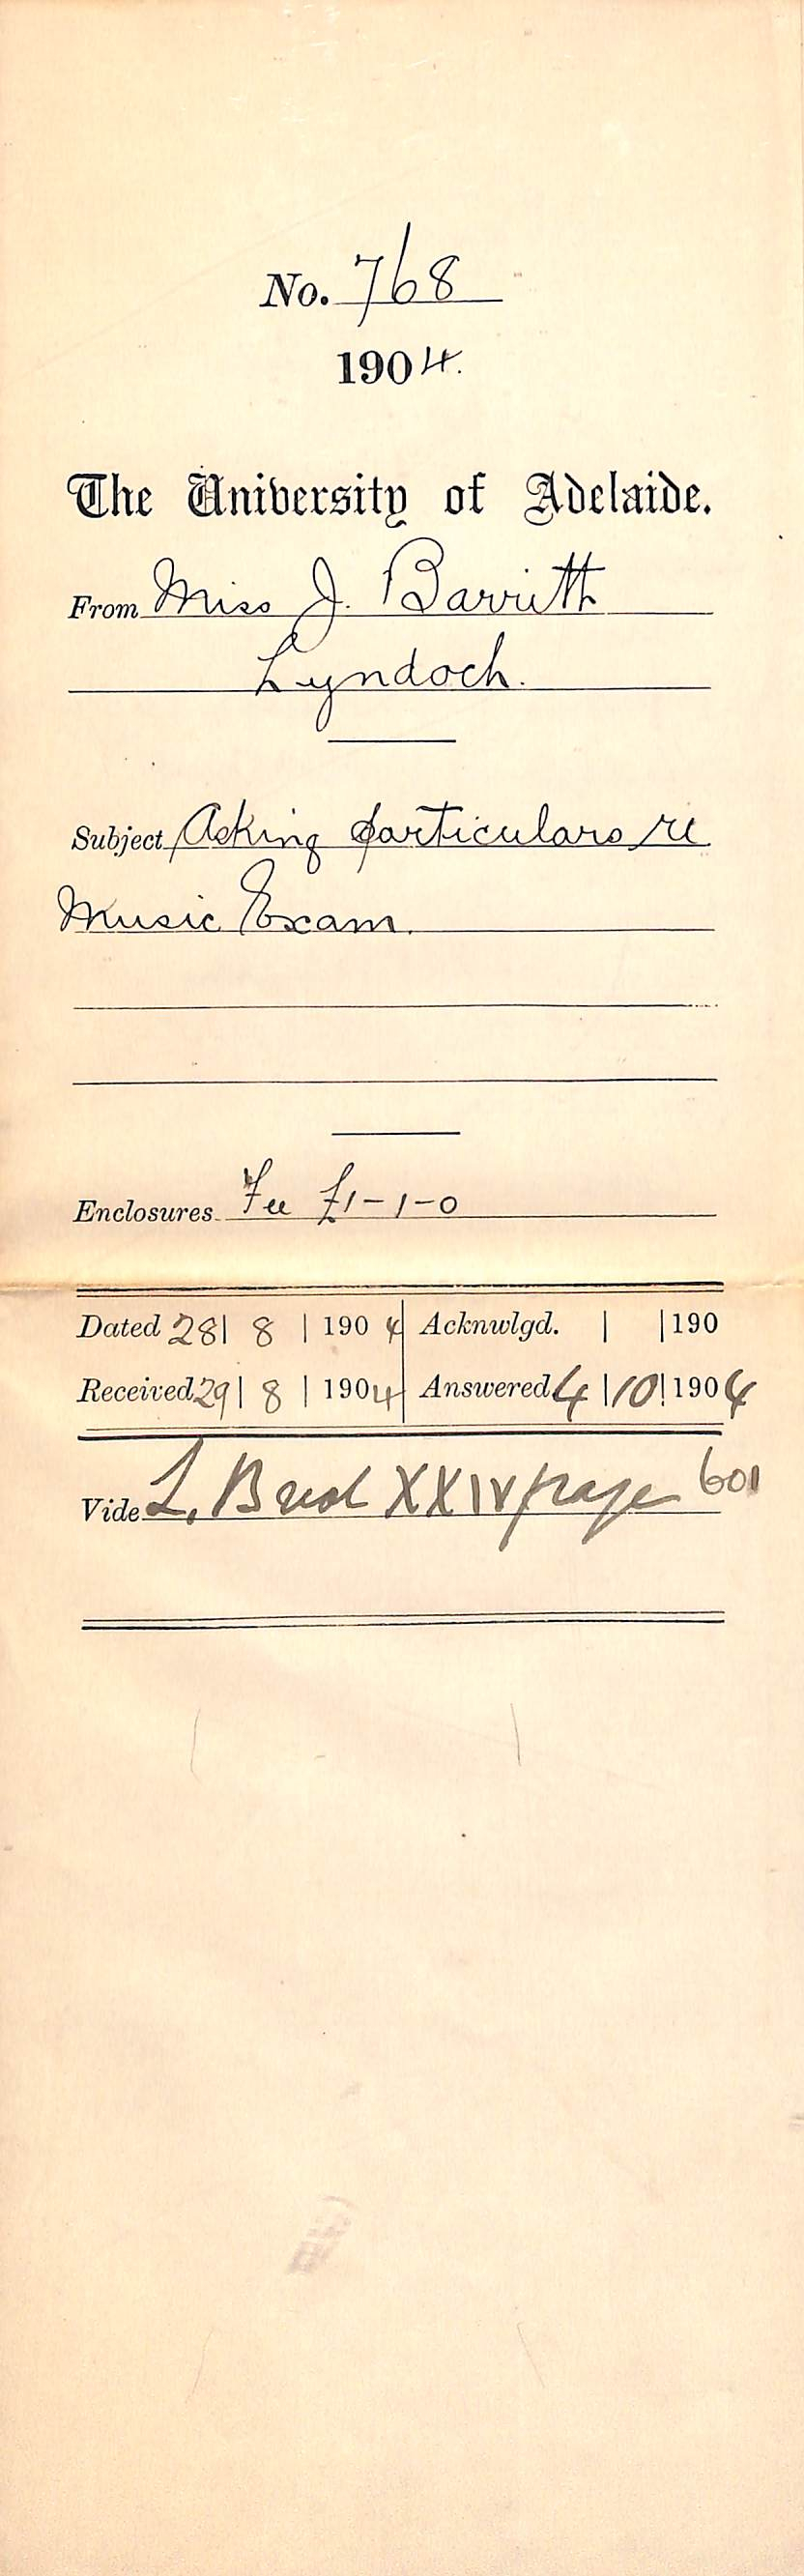 No. 768
1904.
The University of Adelaide.
From Miss J. Barritt
Lyndoch.
Subject Asking particulars re
Music Exam.
Enclosures Fee £1-1-0
Dated 28 | 8 | 1904 Acknwlgd. | | 190
Received 29 | 8 | 1904 Answered 4 | 10 | 1904
Vide L. Book XXIV page 601